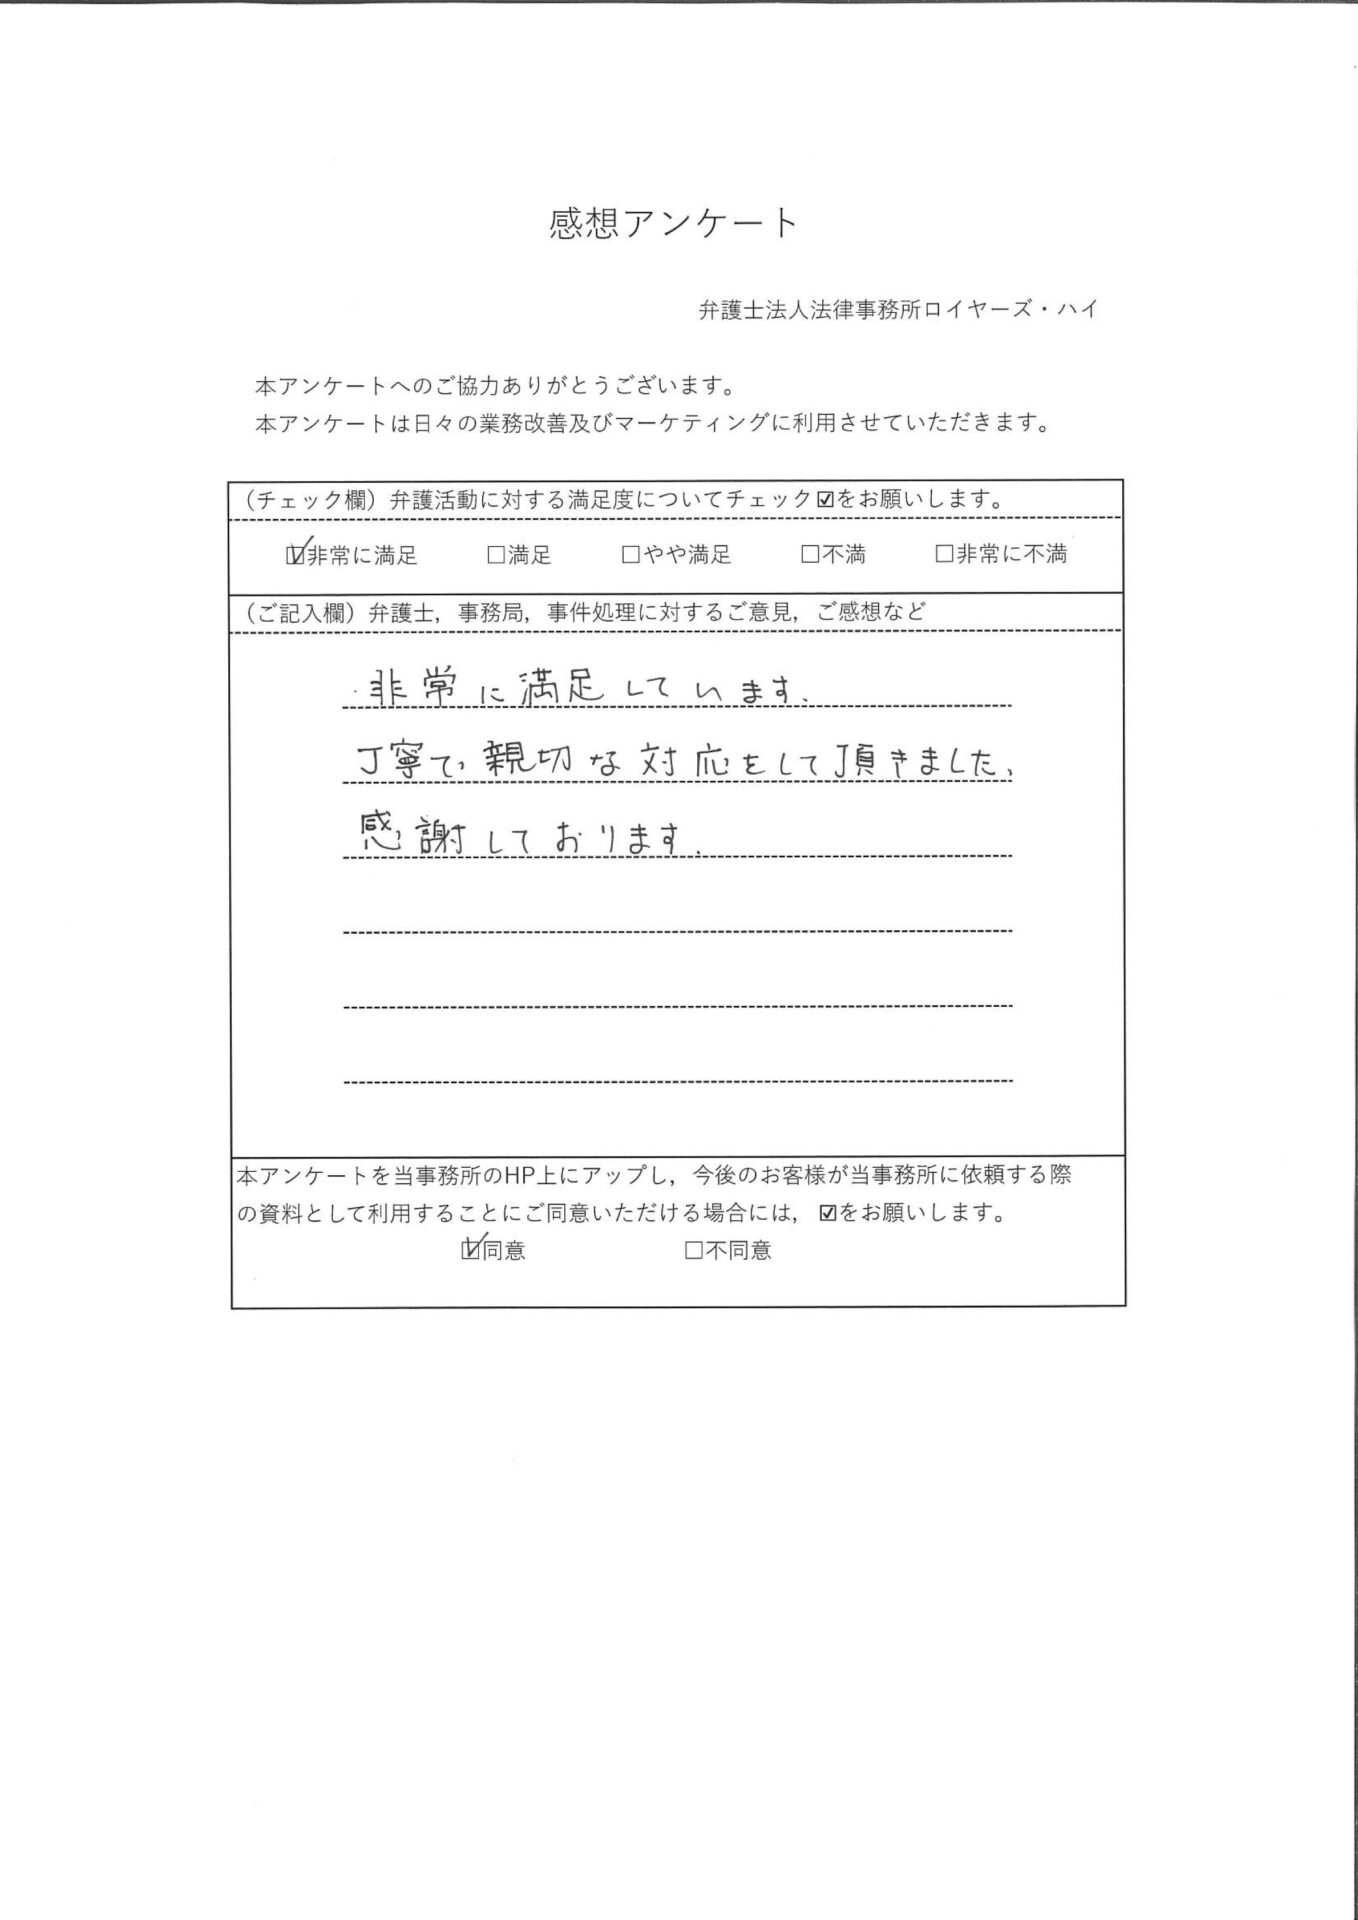 感想アンケート
弁護士法人法律事務所ロイヤーズ・ハイ
本アンケートへのご協力ありがとうございます。
本アンケートは日々の業務改善及びマーケティングに利用させていただきます。
（チェック欄）弁護活動に対する満足度についてチェック☑をお願いします。
☑非常に満足 □満足 □やや満足 □不満 □非常に不満
（ご記入欄）弁護士，事務局，事件処理に対するご意見，ご感想など
非常に満足しています.
丁寧で親切な対応をして頂きました、
感謝しております.
本アンケートを当事務所のHP上にアップし，今後のお客様が当事務所に依頼する際
の資料として利用することにご同意いただける場合には，☑をお願いします。
☑同意 □不同意